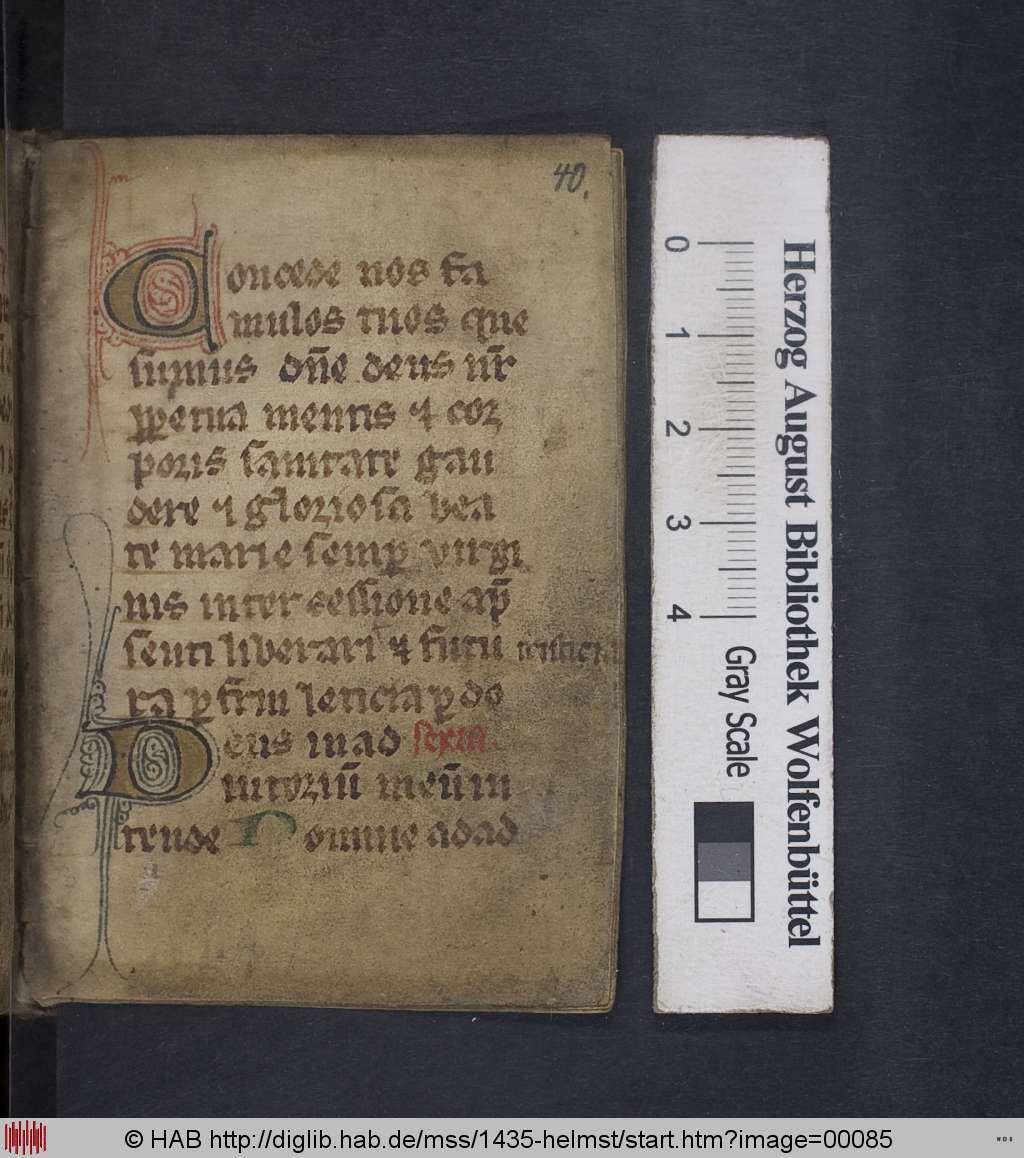 40.
Concede nos fa
mulos tuos que
sumus dn̄e deus nr̄
ꝑpetua mentis ⁊ cor
poris sanitate gau
dere ⁊ gloriosa bea
te marie semꝑ virgi
nis intercessione a p̄
senti liberari ⁊ futu tristicia
ra ꝑfrui leticia ꝑ do
Deus in ad sexta
iutoriū meū in
tende Domine ad ad
Herzog August Bibliothek Wolfenbüttel
0 1 2 3 4
Gray Scale
© HAB http://diglib.hab.de/mss/1435-helmst/start.htm?image=00085